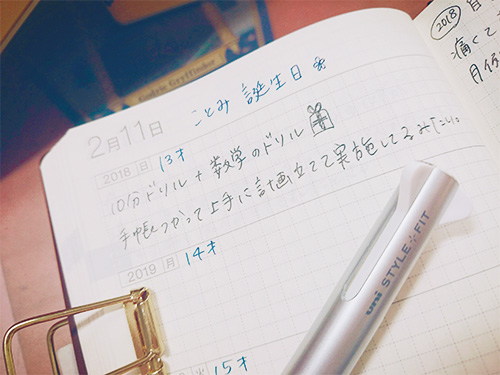 Godric Gryffindor
ことみ 誕生日
2月11日
2018 日 13才
10分ドリル + 数学のドリル
手帳つかって上手に計画立てて実施してるみたい。
2019 月 14才
15才
uni STYLE FIT
2018
痛くて